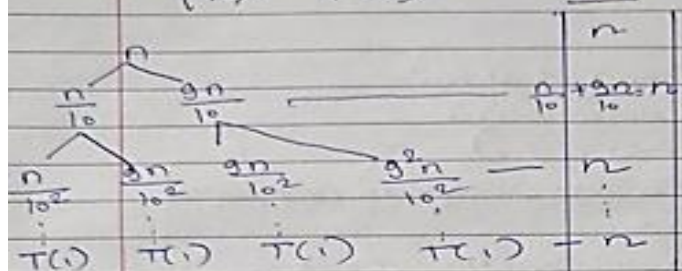 n n
n/10 9n/10 n/10 + 9n/10 = n
n/10² 9n/10² 9n/10² 9²n/10² — n
T(1) T(1) T(1) T(1) — n